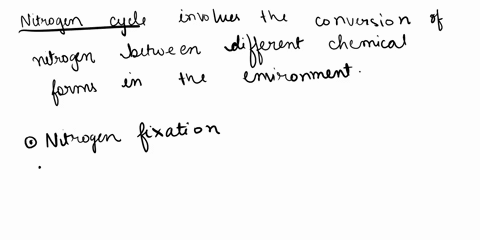 Nitrogen cycle involves the conversion of
nitrogen between different chemical
forms in the environment.
⊙ Nitrogen fixation